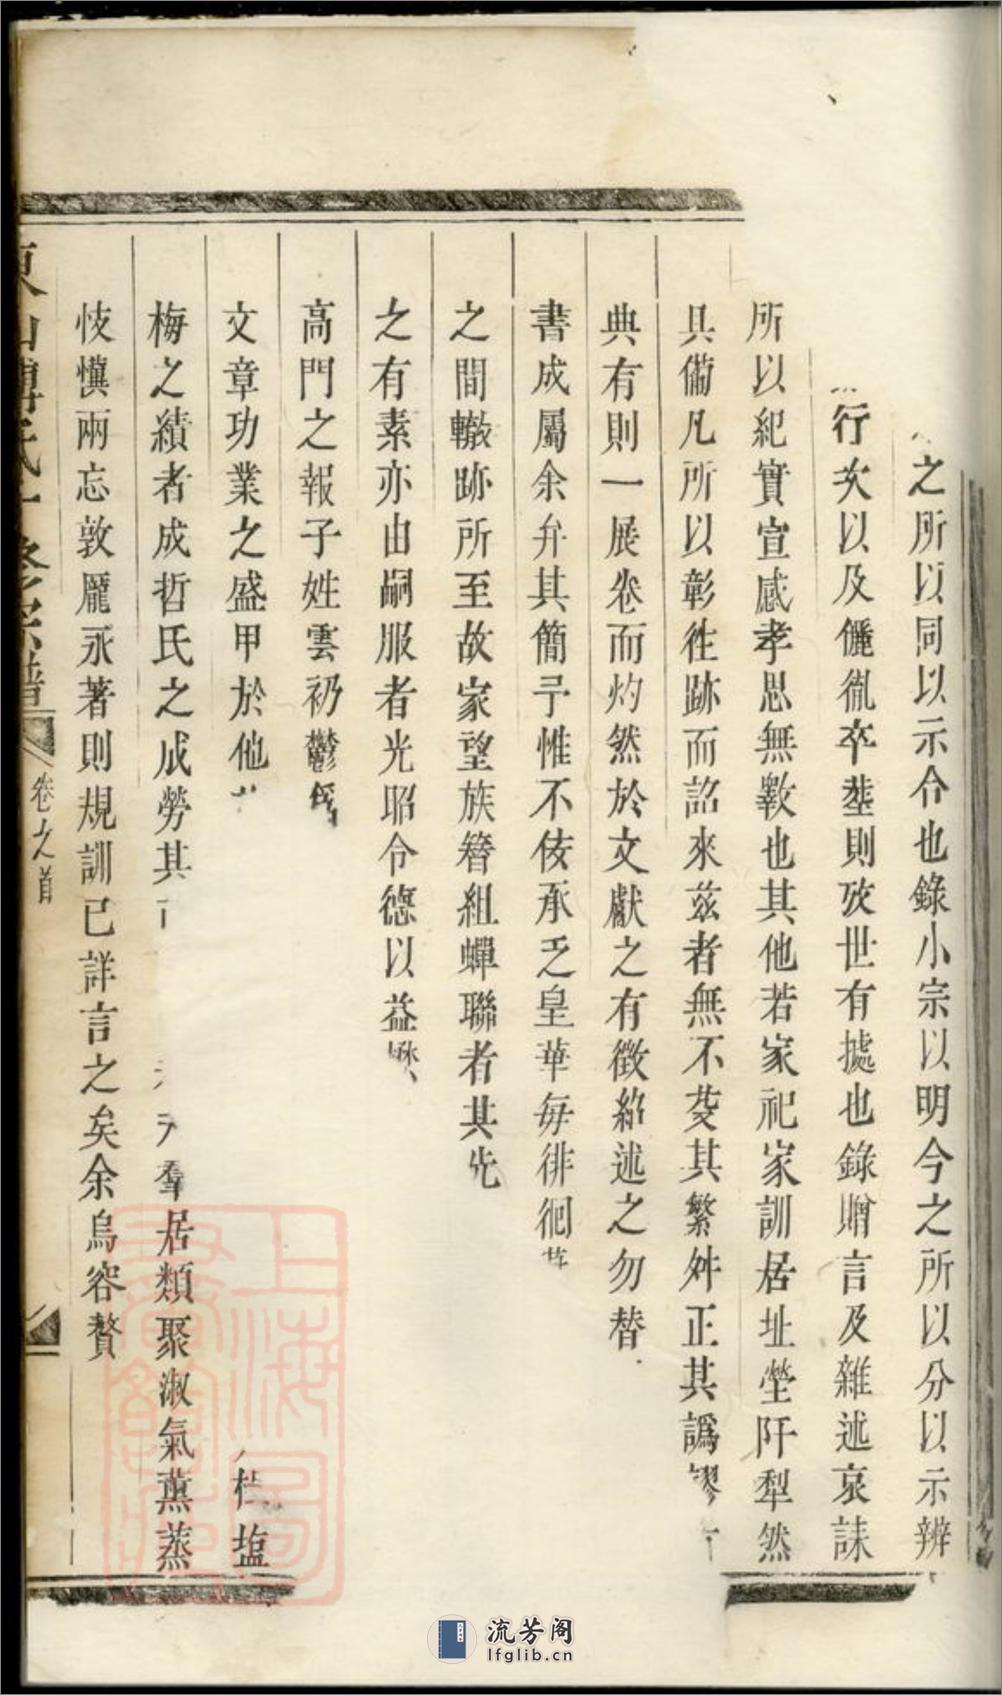 之所以同以示合也錄小宗以明今之所以分以示辨
行次以及儷胤卒塟則攷世有據也錄贈言及雜述哀誄
所以紀實宣感孝思無斁也其他若家祀家訓居址塋阡犁然
具備凡所以彰徃跡而詔來茲者無不芟其繁舛正其譌謬
典有則一展卷而灼然於文獻之有徵紹述之勿替
書成屬余弁其簡予惟不佞承乏皇華每徘徊
之間轍跡所至故家望族簪組蟬聯者其先
之有素亦由嗣服者光昭令德以益懋
高門之報子姓雲礽鬱
文章功業之盛甲於他 塩
梅之績者成哲氏之成勞其 羣居類聚淑氣薰蒸
忮懻兩忘敦龐永著則規訓已詳言之矣余烏容贅
東山傅氏 修宗譜 卷之首
上海圖書館藏
流芳阁
lfglib.cn